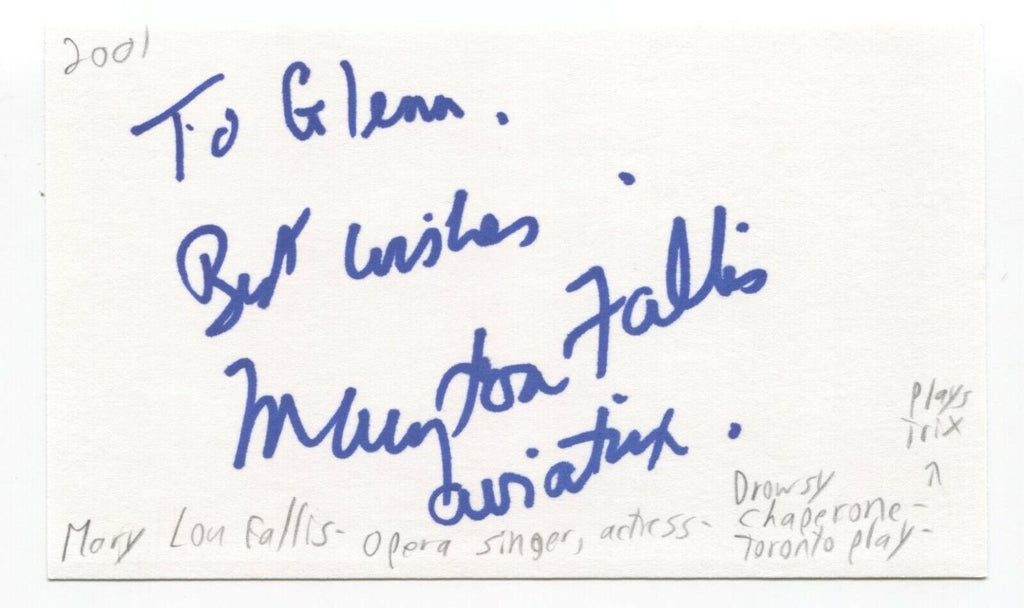 2001
To Glenn.
Best wishes
Mary Lou Fallis
aviatrix.
plays
Trix
^
Drowsy
Mary Lou Fallis- opera singer, actress- chaperone-
Toronto play-